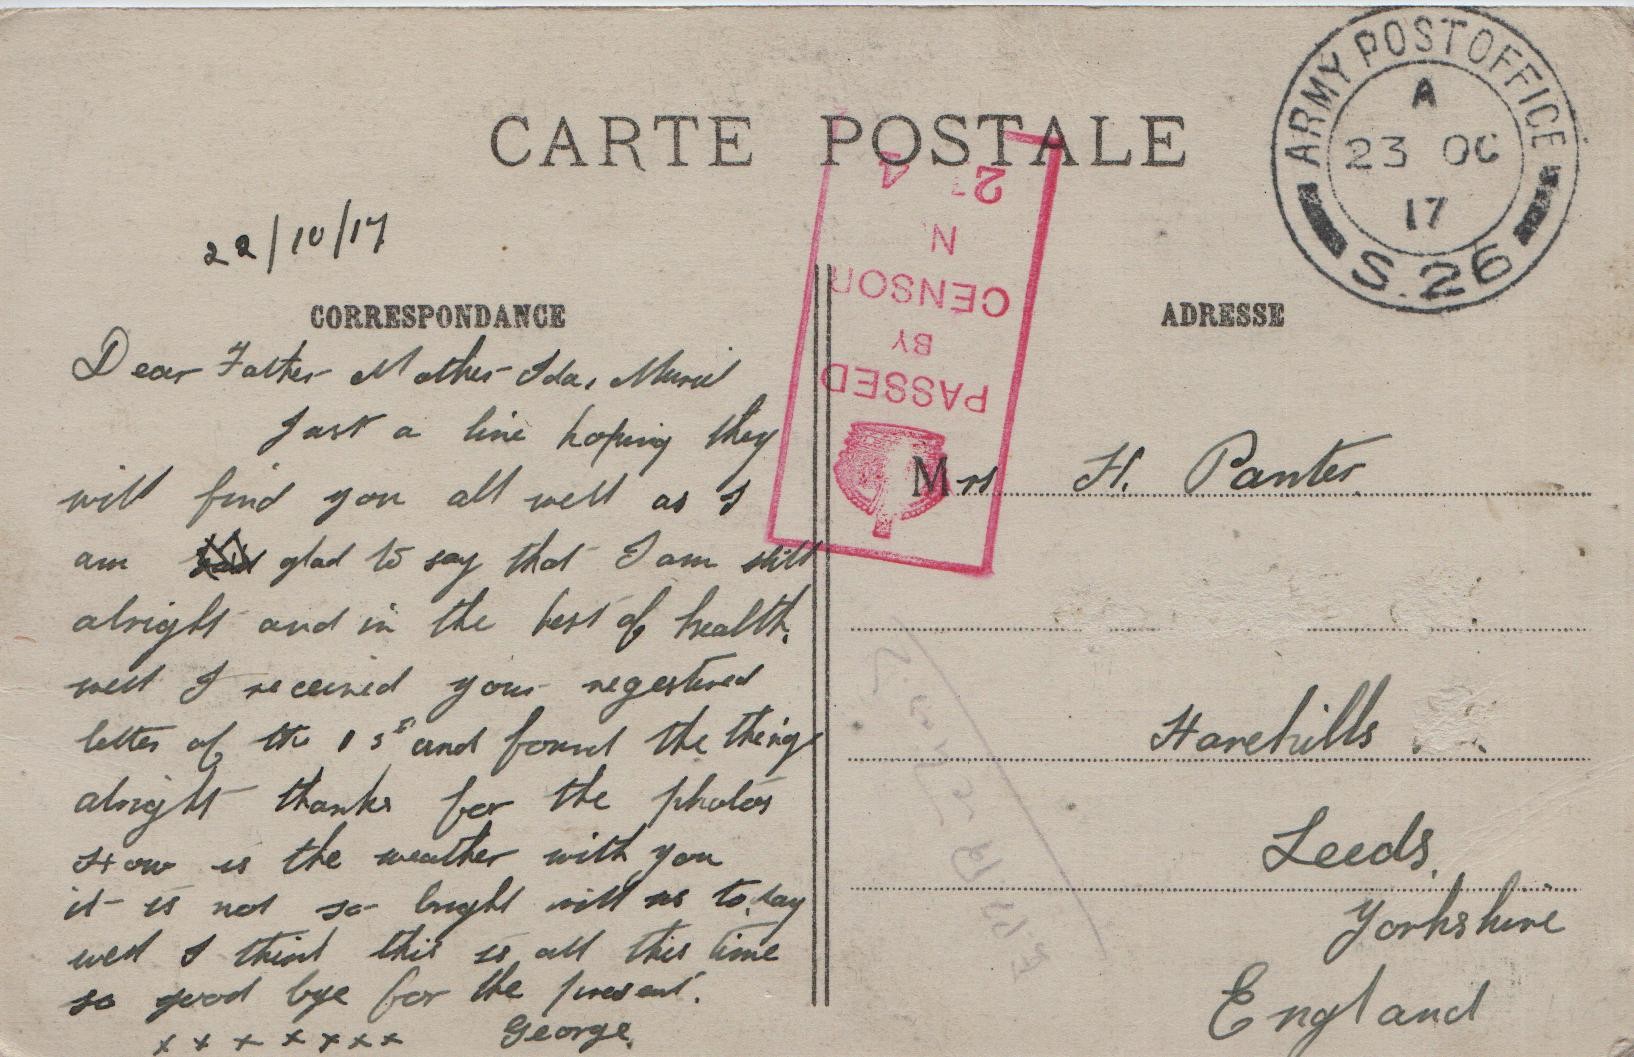 CARTE POSTALE
ARMY POST OFFICE
A
23 OC
17
S.26
22/10/17
CORRESPONDANCE
ADRESSE
PASSED
BY
CENSOR
N
Dear Father Mother Ida, Muriel
Just a line hoping they
will find you all well as I
am glad to say that I am still
alright and in the best of health.
well I received your regestered
letter of the 1st and found the things
alright thanks for the photos
How is the weather with you
it is not so bright with us to day
well I think this is all this time
so good bye for the present.
x x x x x x x George.
Mrs H. Panter
Harehills
Leeds,
Yorkshire
England